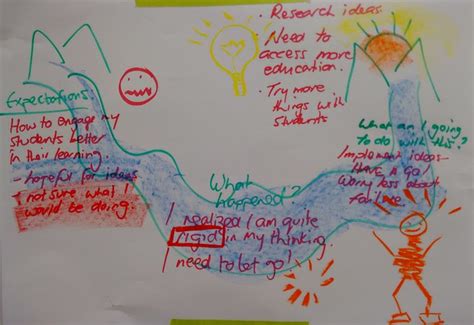 Expectations
How to engage my
students better
in their learning.
- hopeful for ideas
- not sure what I
would be doing.
What
happened?
I realized I am quite
rigid in my thinking.
I need to let go!
• Research ideas
• Need to
access more
education.
• Try more
things with
students
What am I going
to do with this?
Implement ideas -
Have a go
Worry less about
failure